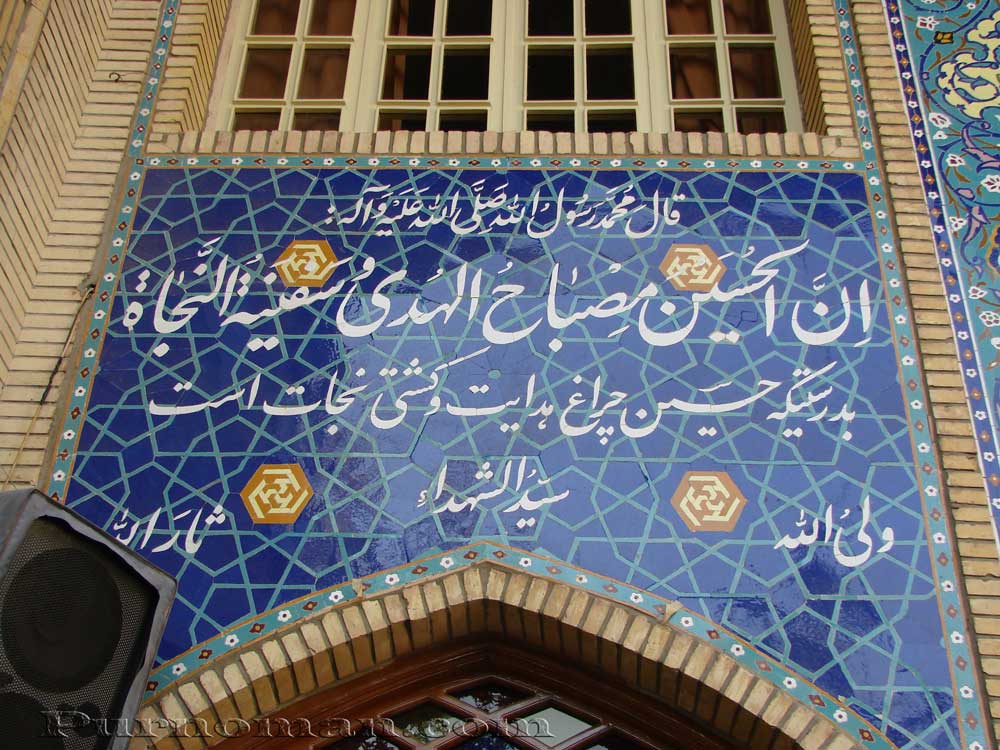 قال محمد رَسولُ الله صَلَّی الله عَلَیْهِ وَآلِه:
اِنَّ الحُسَین مِصْباحُ الهُدیٰ وَ سَفینَةُ النَّجاة
بدرستیکه حسین چراغ هدایت و کشتی نجات است
ولیُ الله سیّدُ الشهداء ثارَ الله
Purnoman.com